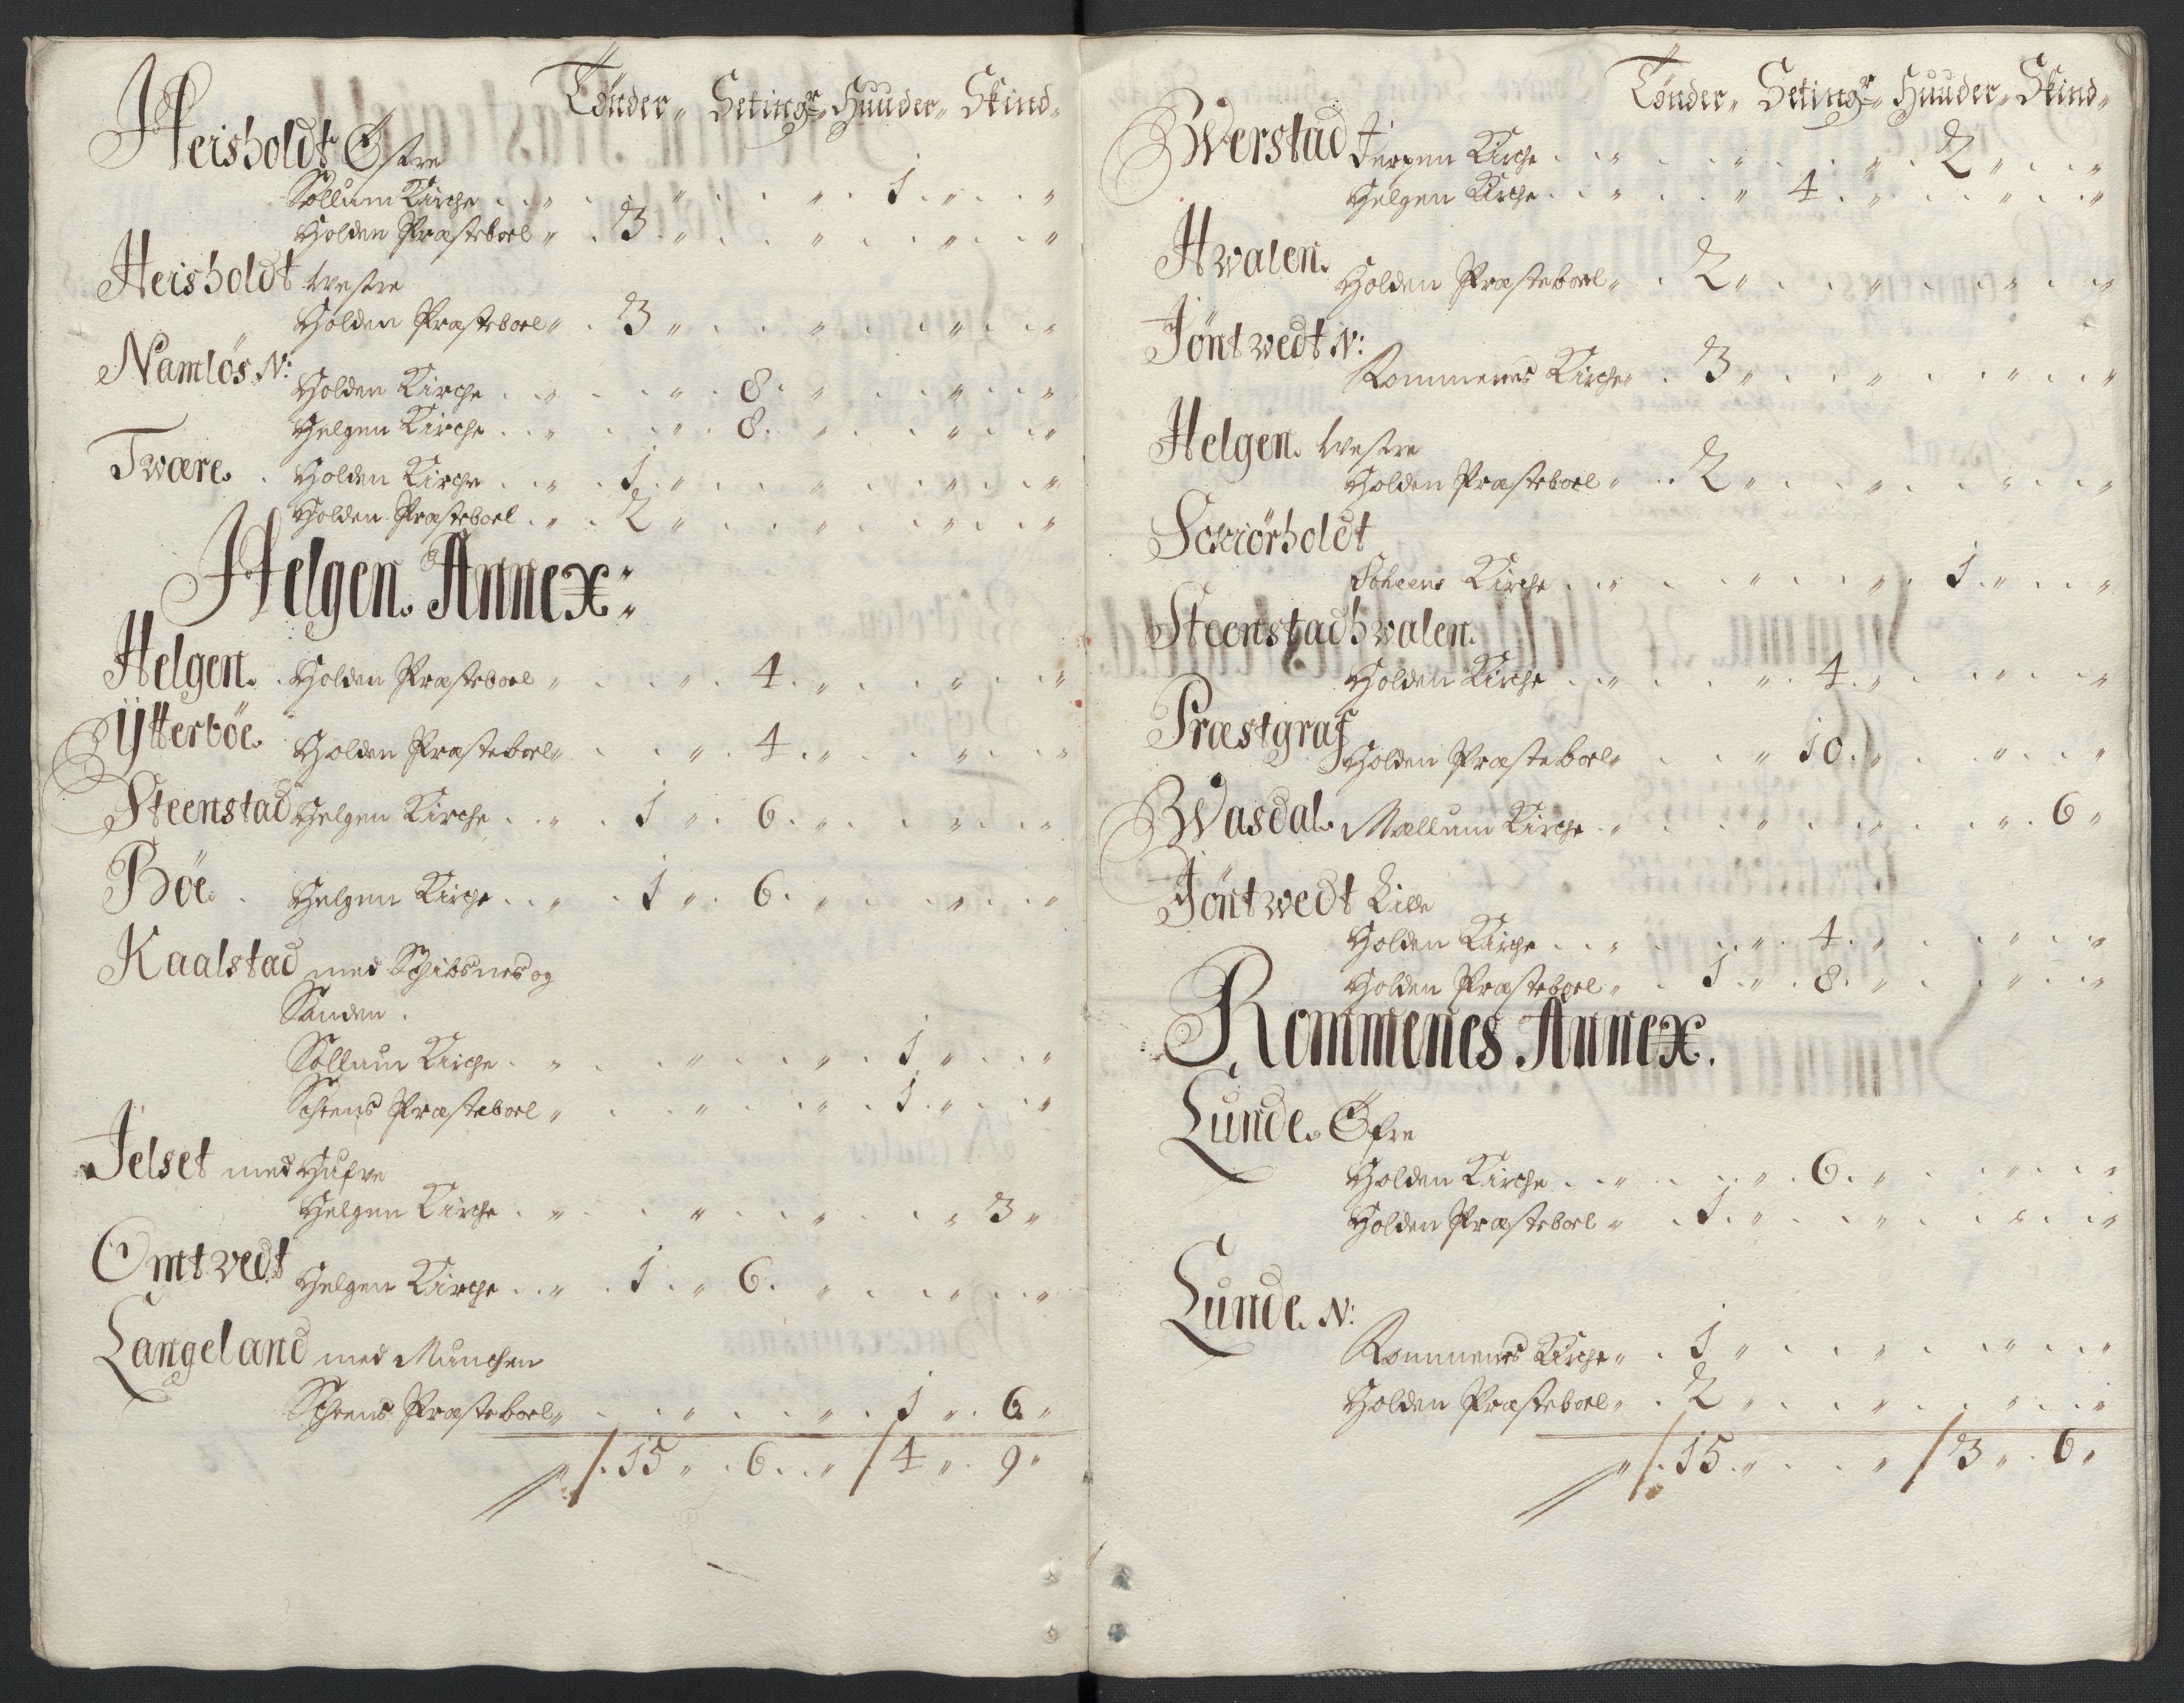 Tönder„ Setingr„ Huuder„ Skind„
Heisholdt Østre
Sollum Kirche . . „ . „ . . „ . 1 . „ . . „
Holden Præsteboel „ . 3 . „ . . „ . . „ . . „
Heisholdt Westre
Holden Præsteboel „ . 3 „ . . „ . . „ . . „
Namlös N:
Holden Kirche . . „ . . „ . 8 . „ . . „ . . „
Helgen Kirche . . „ . . „ . 8 . „ . . „ . . „
Tvære. . Holden Kirche . . „ . 1 . „ . . „ . . „ . . „
Holden Præsteboel . „ . 2 „ . . „ . . „ . . „
Helgen Annex:
Helgen. . Holden Præsteboel „ . . „ . 4 . „ . . „ . . „
Ytterböe. Holden Præsteboel „ . . „ . 4 . „ . . „ . . „
Steenstad Helgen Kirche . . „ . 1 „ . 6 . „ . . „ . . „
Böe . Helgen Kirche . . „ . 1 „ . 6 . „ . . „ . . „
Kaalstad med Schibsnes og
Sanden .
Sollum Kirche . „ . . „ . . „ . 1 „ . . „
Scheens Præsteboel „ . . „ . . „ . 1 . „ . . „
Jelset med Hufve
Helgen Kirche . „ . . „ . . „ . . „ 3 „
Omtvedt Helgen Kirche . . „ . 1 . „ 6 . „ . . „ . . „
Langeland med Munchen
Scheens Præsteboel „ . . „ . . „ . 1 „ . 6 „
„ / . 15 „ . 6 . . „ / 4 „ . 9 „
Tönder„ Setingr„ Huuder„ Skind„
Werstad Jerpen Kirche . . „ . . „ . . „ . 2 „ . . „
Helgen Kirche . . „ . . „ 4 . „ . . „ . . „
Hvalen. Holden Præsteboel „ . 2 „ . . „ . . „ . . „
Jöntvedt N:
Rommenes Kirche „ . 3 „ . . „ . . „ . . „
Helgen. Westre
Holden Præsteboel „ . . 2 „ . . „ . . „ . . „
Schiörholdt
Scheens Kirche . . „ . . „ . . „ . 1 . „ . . „
Steenstadhvalen.
Holden Kirche . . „ . . „ . 4 . „ . . „ . . „
Præstgraf Holden Præsteboel „ . . „ 10 . „ . . „ . . „
Wasdal. Mællum Kirche . „ . . „ . . „ . . „ . 6 „
Jöntvedt Lille
Holden Kirche . . „ . . „ . 4 . „ . . „ . . „
Holden Præsteboel „ . 1 . „ . 8 . „ . . „ . . „
Rommenes Annex.
Lunde. Øfre
Holden Kirche . . „ . . „ . 6 . „ . . „ . . „
Holden Præsteboel „ . 1 . „ . . „ . . „ . . „
Lunde. N:
Rommenes Kirche „ . 1 „ . . „ . . „ . . „
Holden Præsteboel „ . 2 „ . . „ . . „ . . „
„ / . 15 . „ . . „ / 3 „ . 6 „